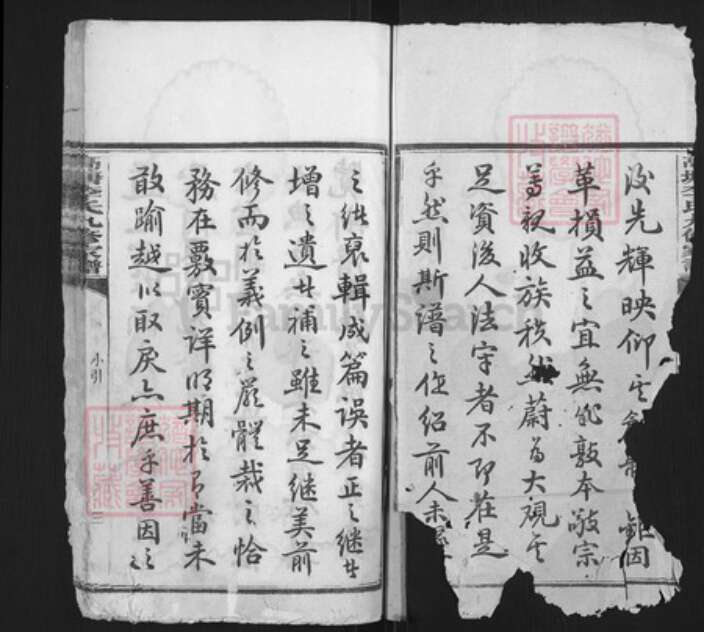 後先輝映仰
革損益之宜無非敦本敬宗
尊祖收族秩然蔚為大觀
足資後人法守者不即在是
乎然則斯譜之作紹前人未
之緒裒輯成篇誤者正之継者
增之遺者補之雖未足継美前
修而於義例之嚴體裁之恰
務在覈實詳明期於的當未
敢踰越以取戾亦庶乎善因之
小引
李氏九修家譜
FamilySearch